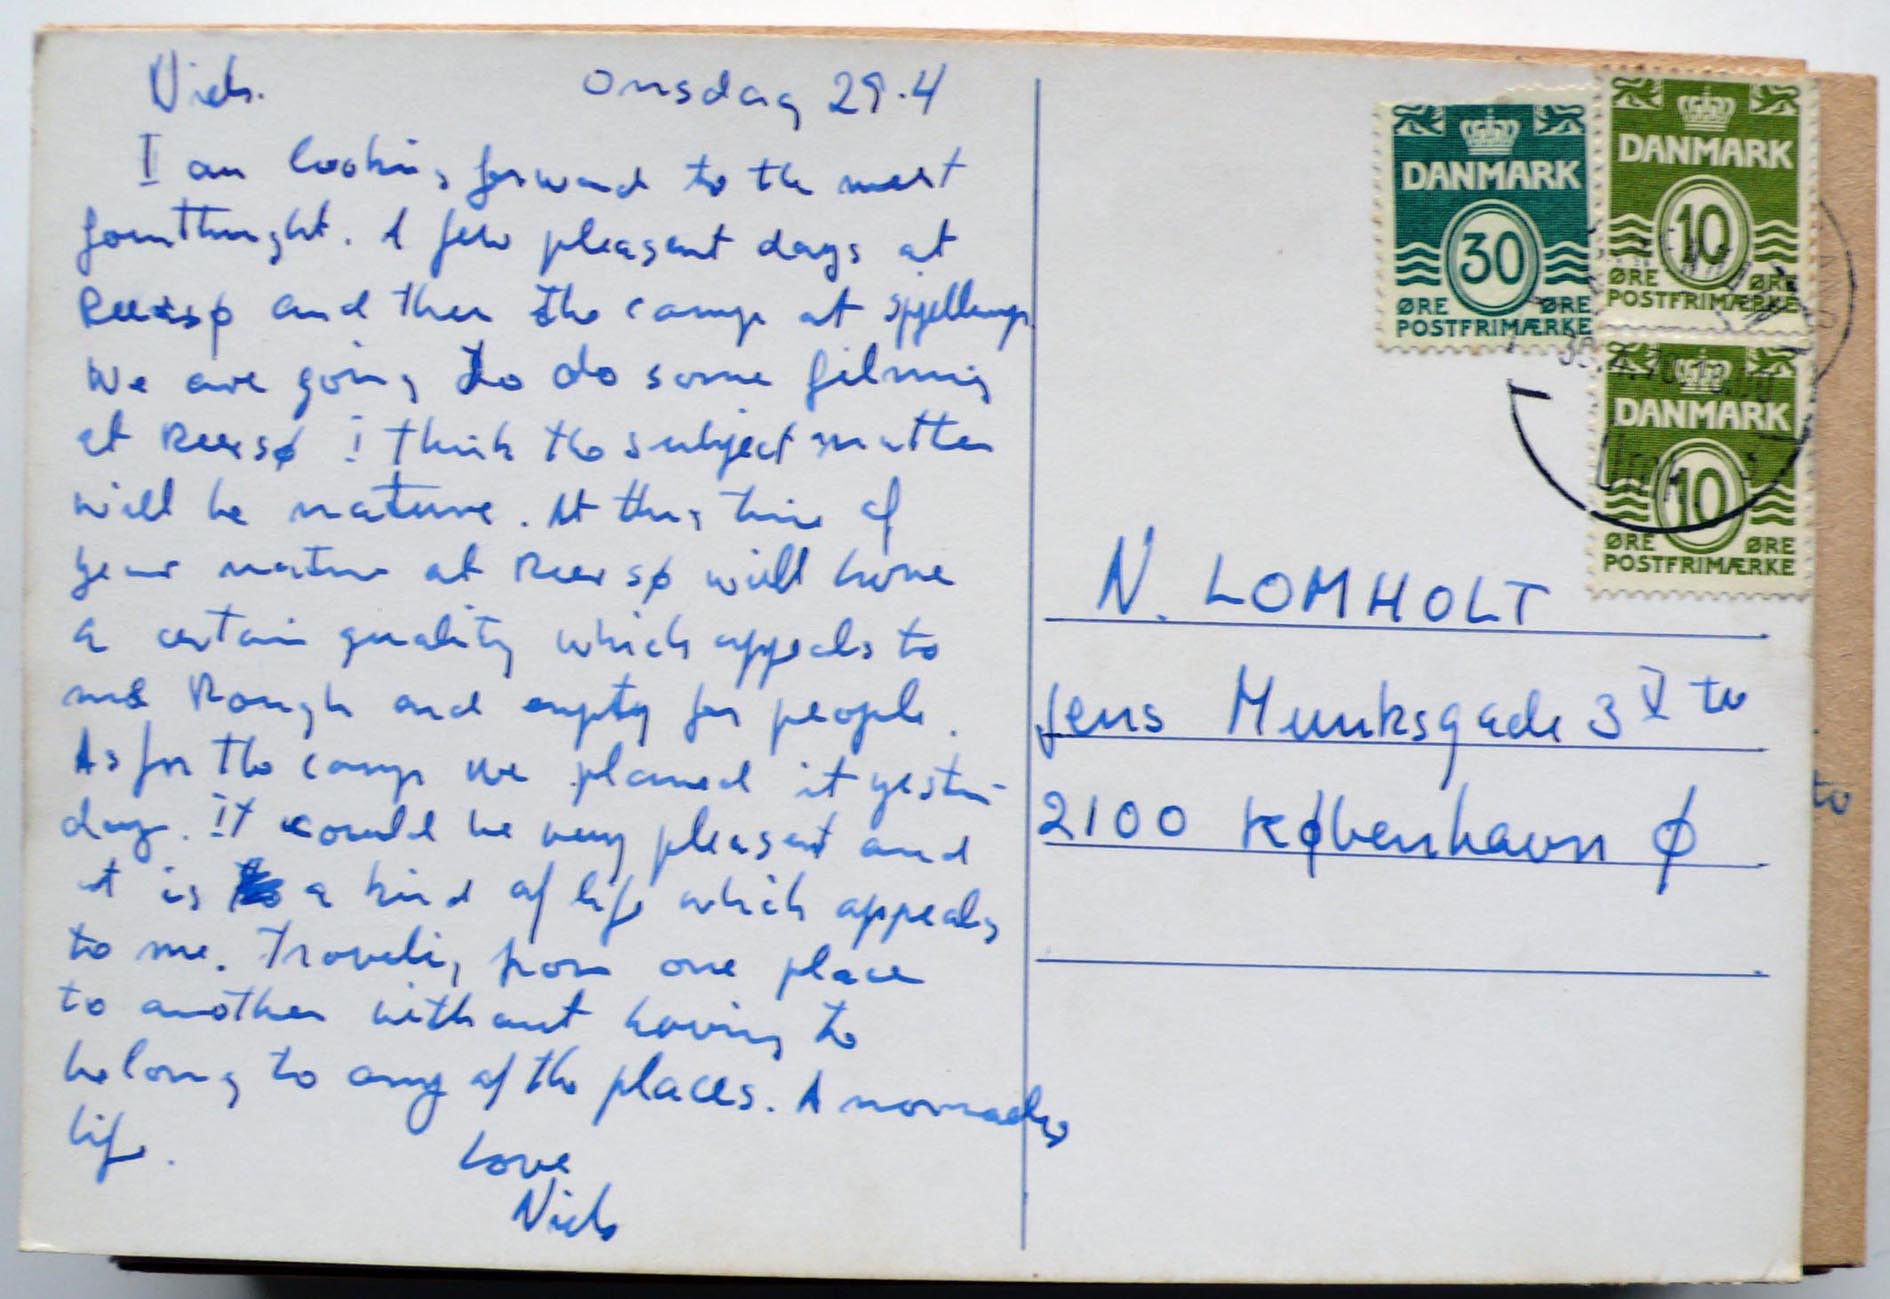 Niels.
Onsdag 29.4
I am looking forward to the next
fourthnight. A few pleasant days at
Reersø and then the camp at Spjellerup
We are going to do some filming
at Reersø I think the subject matter
will be nature. At this time of
year nature at Reersø will have
a certain quality which appeals to
me Rough and empty for people.
As for the camp we planned it yester-
day. It could be very pleasant and
it is a kind of life which appeals
to me. Traveling from one place
to another without having to
belong to any of the places. A nomades
life.
Love
Niels
DANMARK
30
ØRE ØRE
POSTFRIMÆRKE
DANMARK
10
ØRE ØRE
POSTFRIMÆRKE
DANMARK
10
ØRE ØRE
POSTFRIMÆRKE
N. LOMHOLT
Jens Munksgade 3 V to
2100 København Ø
to